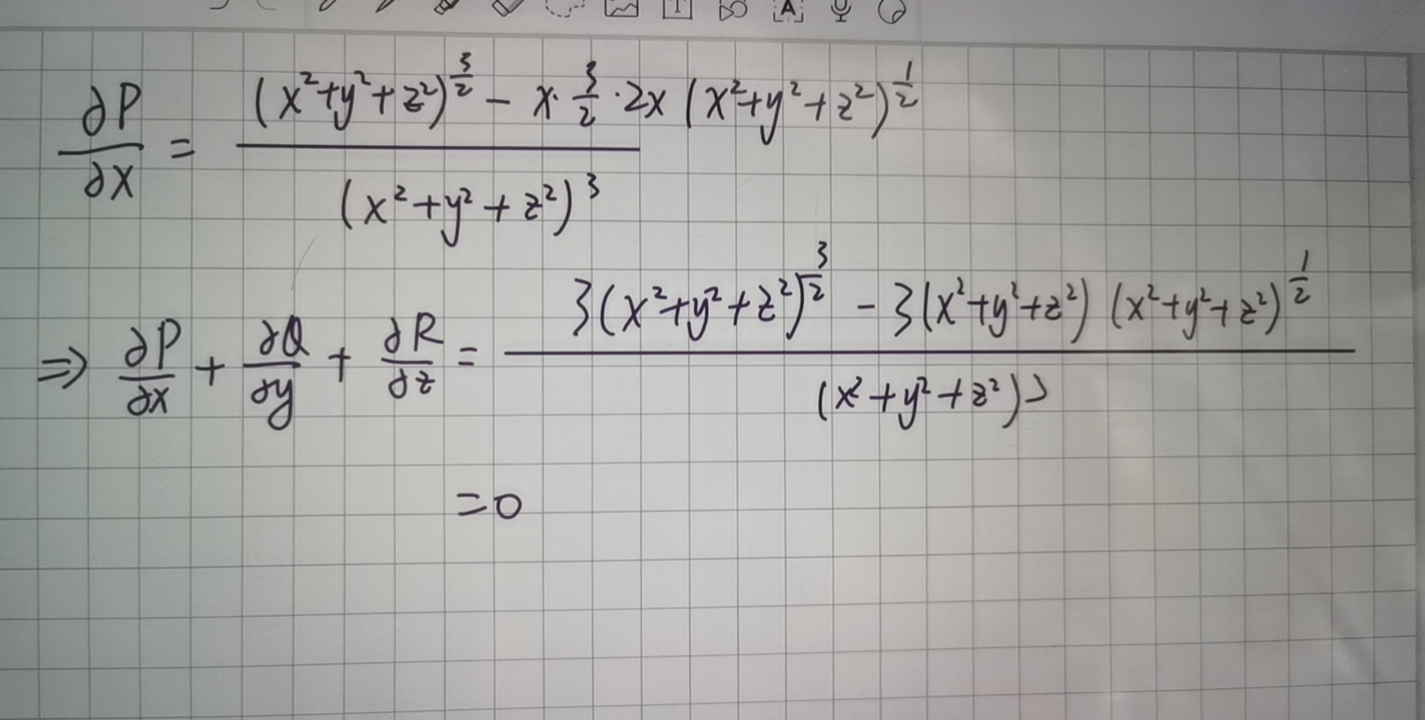 ∂P/∂x = ((x²+y²+z²)^(3/2) − x·(3/2)·2x (x²+y²+z²)^(1/2)) / (x²+y²+z²)³
⇒ ∂P/∂x + ∂Q/∂y + ∂R/∂z = (3(x²+y²+z²)^(3/2) − 3(x²+y²+z²)(x²+y²+z²)^(1/2)) / (x²+y²+z²)³
=0